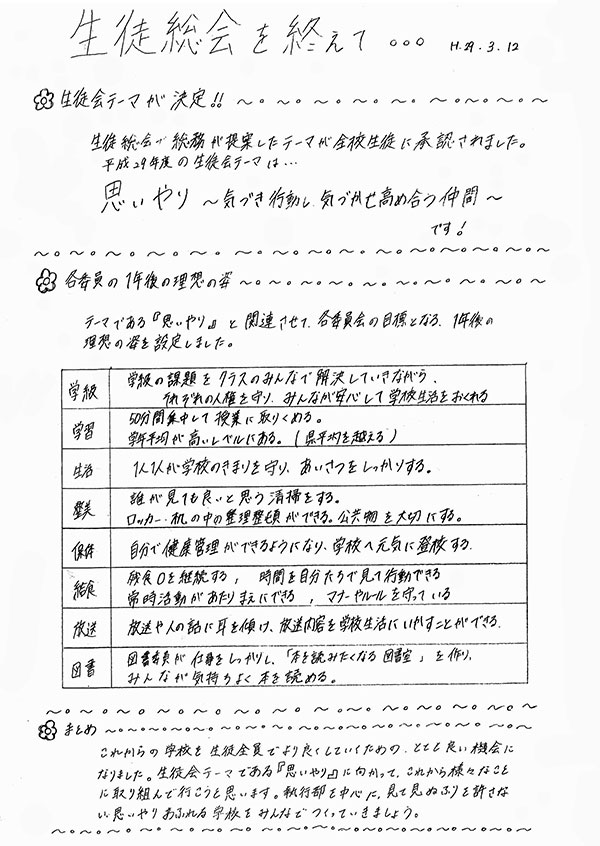 生徒総会を終えて... H.29.3.12
生徒会テーマが決定!!
生徒総会で総務が提案したテーマが全校生徒に承認されました。
平成29年度の生徒会テーマは…
思いやり 〜気づき行動し 気づかせ高め合う仲間〜
です!
各委員の1年後の理想の姿
テーマである『思いやり』と関連させて、各委員会の目標となる、1年後の
理想の姿を設定しました。
学級 学級の課題をクラスのみんなで解決していきながら、
それぞれの人権を守り、みんなが安心して学校生活をおくれる
学習 50分間集中して授業に取りくめる。
学年平均が高いレベルにある。(県平均を越える)
生活 1人1人が学校のきまりを守り、あいさつをしっかりする。
整美 誰が見ても良いと思う清掃をする。
ロッカー・机の中の整理整頓ができる。公共物を大切にする。
保体 自分で健康管理ができるようになり、学校へ元気に登校する。
給食 残食0を継続する, 時間を自分たちで見て行動できる
常時活動があたりまえにできる, マナーやルールを守っている
放送 放送や人の話に耳を傾け、放送内容を学校生活にいかすことができる。
図書 図書委員が仕事をしっかりし、「本を読みたくなる図書室」を作り、
みんなが気持ちよく本を読める。
まとめ
これからの学校を生徒全員でより良くしていくための、とても良い機会に
なりました。生徒会テーマである『思いやり』に向かって、これから様々なこと
に取り組んで行こうと思います。執行部を中心に、見て見ぬふりを許さな
い思いやりあふれる学校をみんなでつくっていきましょう。